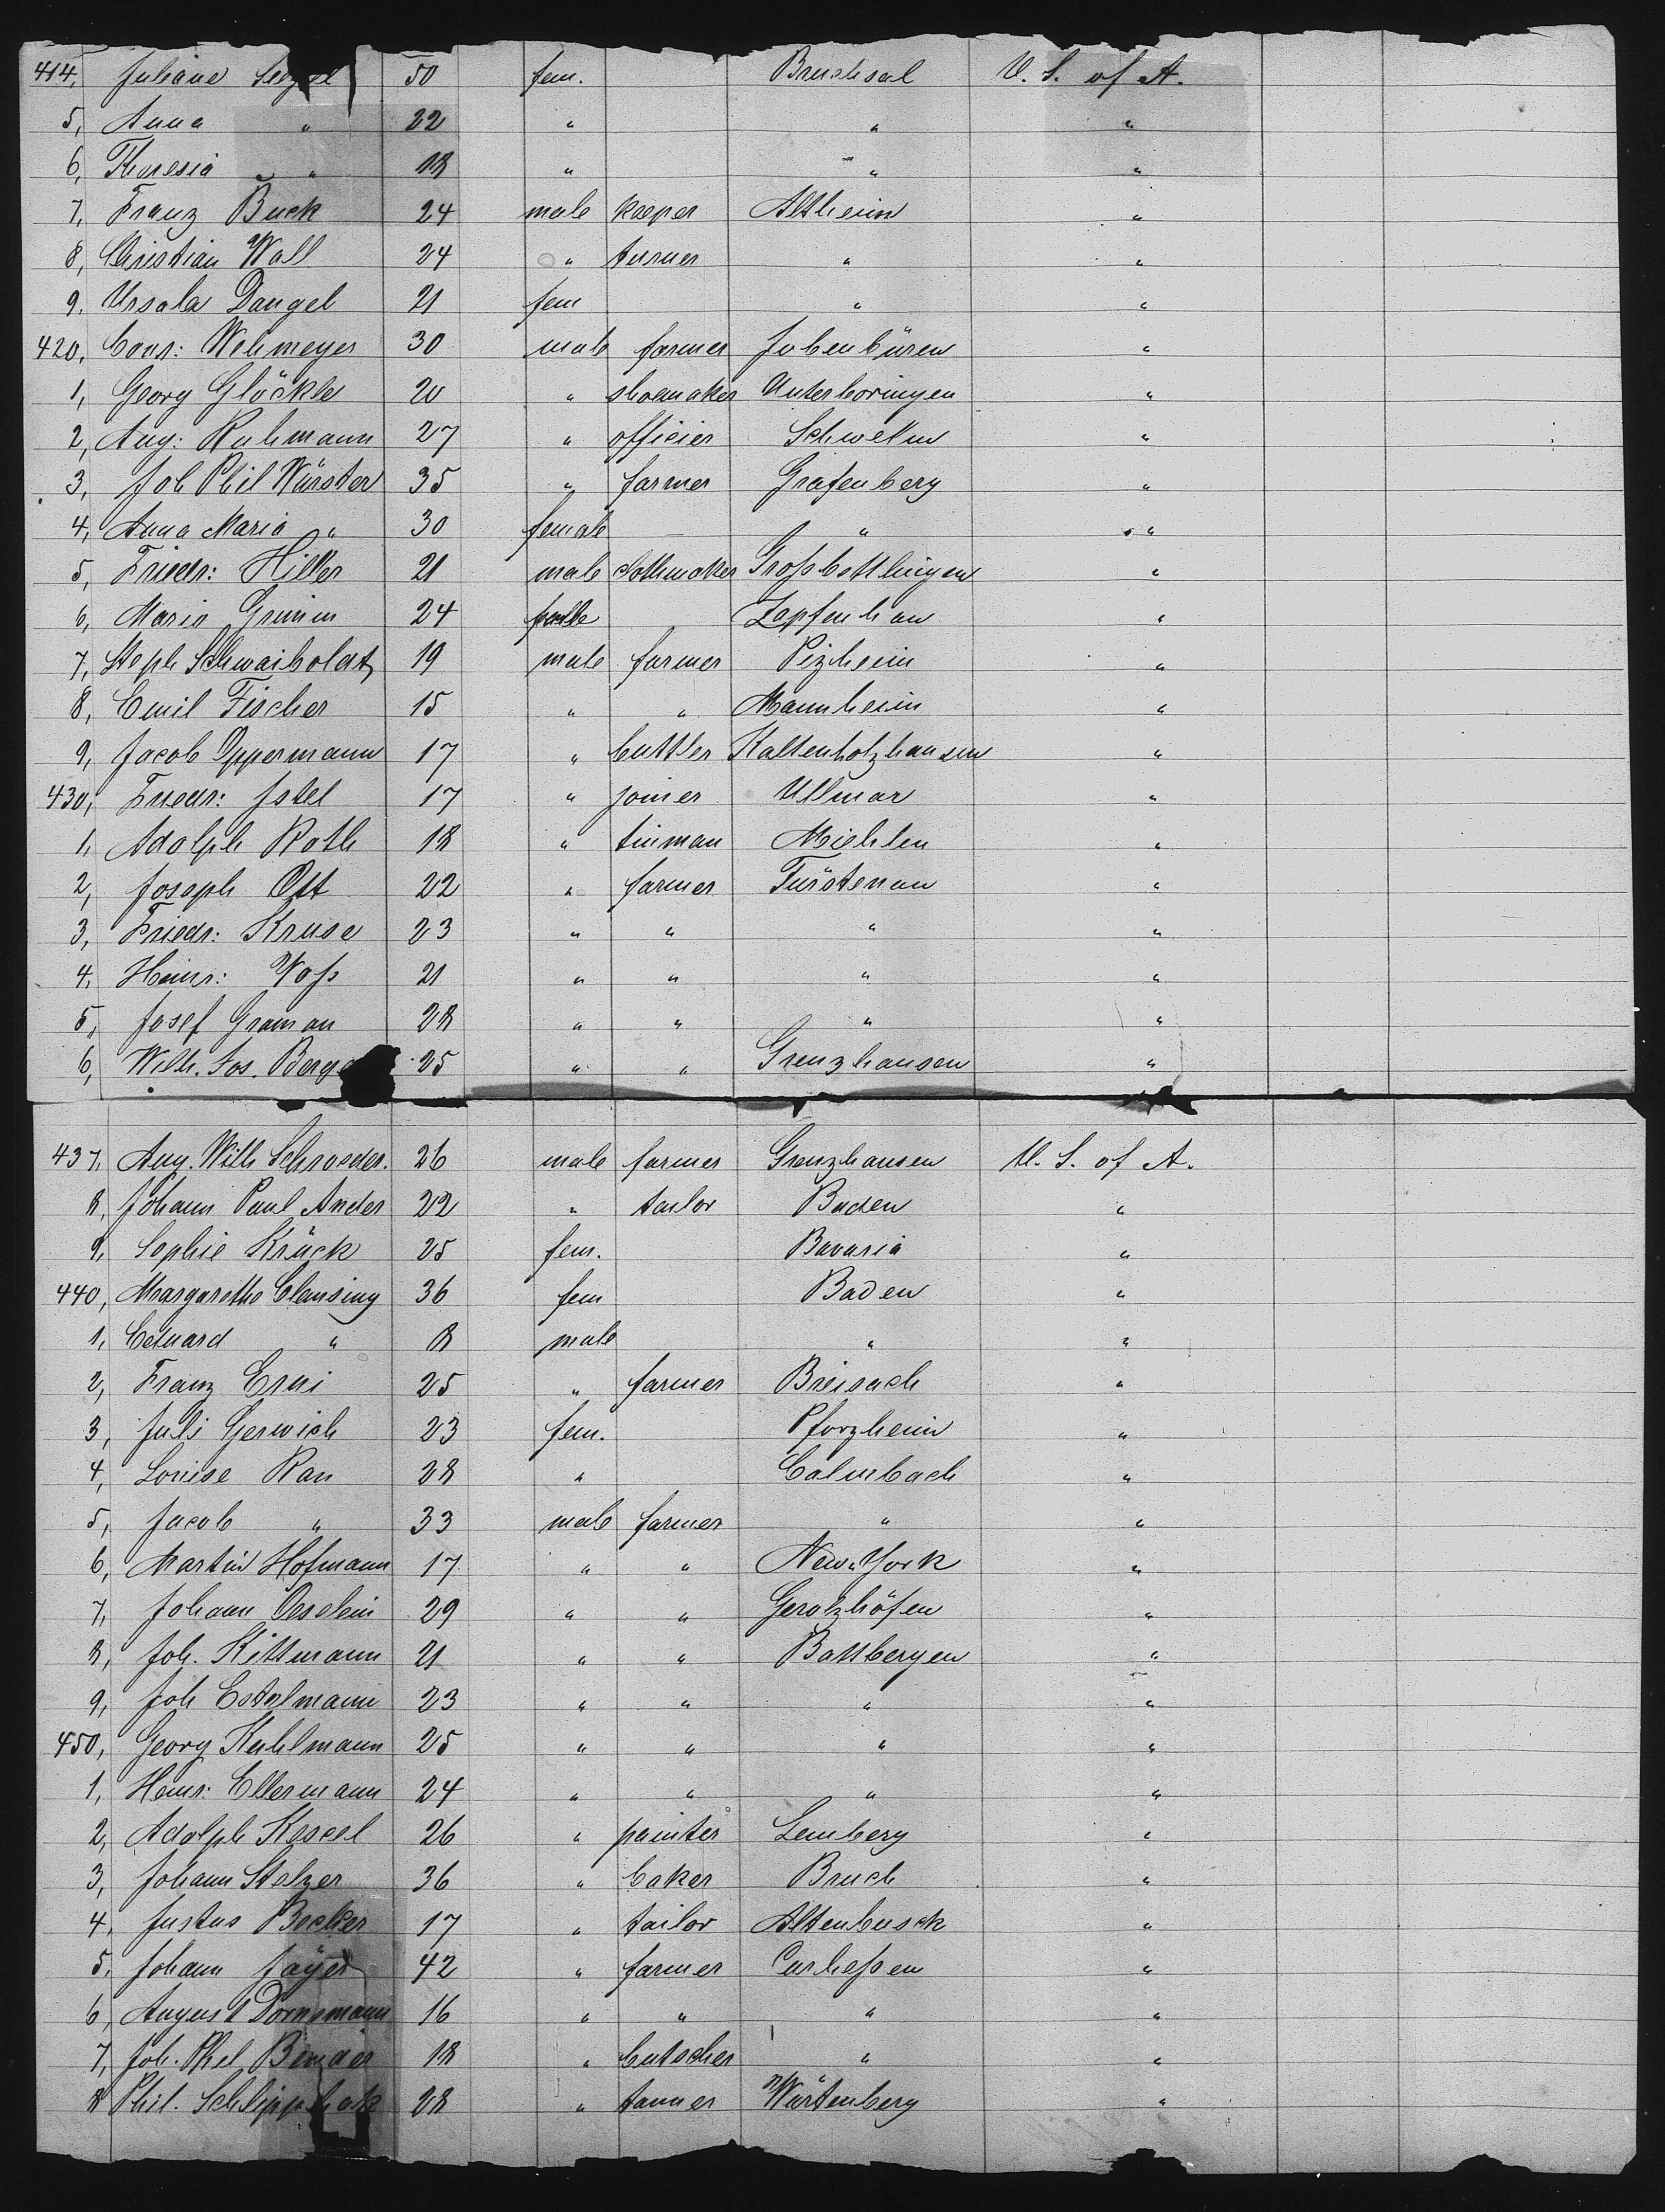 414, Juliane 50 fem. Bruchsal U. S. of A.
5, Anna " 22 " " "
6, Theresia " 18 " " "
7, Franz Buck 24 male keeper Altheim "
8, Christian Wall 24 " turner " "
9. Ursula Dangel 21 fem " "
420, Conr: Wehmeyer 30 male farmer Jubenbüren "
1, Georg Glöckle 20 " shoemaker Unterboringen "
2, Aug: Ruhmann 27 " officier "
3, Joh Phil Wurster 35 " farmer Grafenberg "
4, Anna Maria " 30 female " "
5, Friedr: Hiller 21 male Großbettlingen "
6, Maria Grimm 24 Zapfenhan "
7, Steph Schwaiboldt 19 male farmer Pizheim "
8, Emil Fischer 15 " " Mannheim "
9, Jacob Oppermann 17 " buttler Kaltenholzhausen "
430, Friedr: Istel 17 " joiner Ullmar "
1, Adolph Roth 18 " tinman Miehlen "
2, Joseph Ott 22 " farmer Fürstenau "
3, Friedr: Kruse 23 " " " "
4, Heinr: Voß 21 " " " "
5, Josef Graman 28 " " " "
6, Wilh. Jos. 25 " " Grenzhausen "
437, Aug. Wilh Schroeder. 26 male farmer Grenzhausen U. S. of A.
8, Johann Paul Ander 22 " tailor Baden "
9, Sophie Krück 25 fem. Bavaria "
440, Margarethe Clausing 36 fem Baden "
1, Eduard " 8 male " "
2, Franz Erni 25 " farmer Breisach "
3, Juli Gerwich 23 fem. Pforzheim "
4, Louise Rau 28 " Calmbach "
5, Jacob " 33 male farmer " "
6, Martin Hofmann 17 " " New-York "
7, Johann Oeslein 29 " " Gerolzhöfen "
8, Joh. Kittmann 21 " " Battbergen "
9, Joh Estelmann 23 " " " "
450, Georg Kuhlmann 25 " " " "
1, Heinr: Ellermann 24 " " " "
2, Adolph Kessel 26 " painter Lemberg "
3, Johann Stelzer 36 " baker Bruch "
4, Justus Becker 17 " tailor Altenbusek "
5, Johann Jäger 42 " farmer Curheßen "
6, August Dornsmann 16 " " " "
7, Joh. Phil Bender 18 " butscher " "
8 Phil. 28 " tanner Würtenberg "